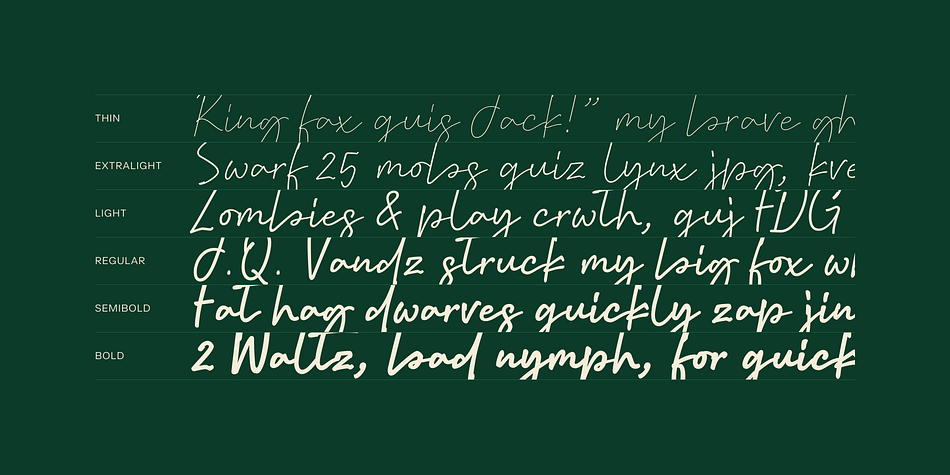 THIN King fox quis Jack!” my brave gh
EXTRALIGHT Swark 25 mobs quiz lynx jpg, kve
LIGHT Zombies & play crwth, guj FDG
REGULAR J.Q. Vandz struck my big fox wh
SEMIBOLD Fat hag dwarves quickly zap jin
BOLD 2 Waltz, bad nymph, for quick